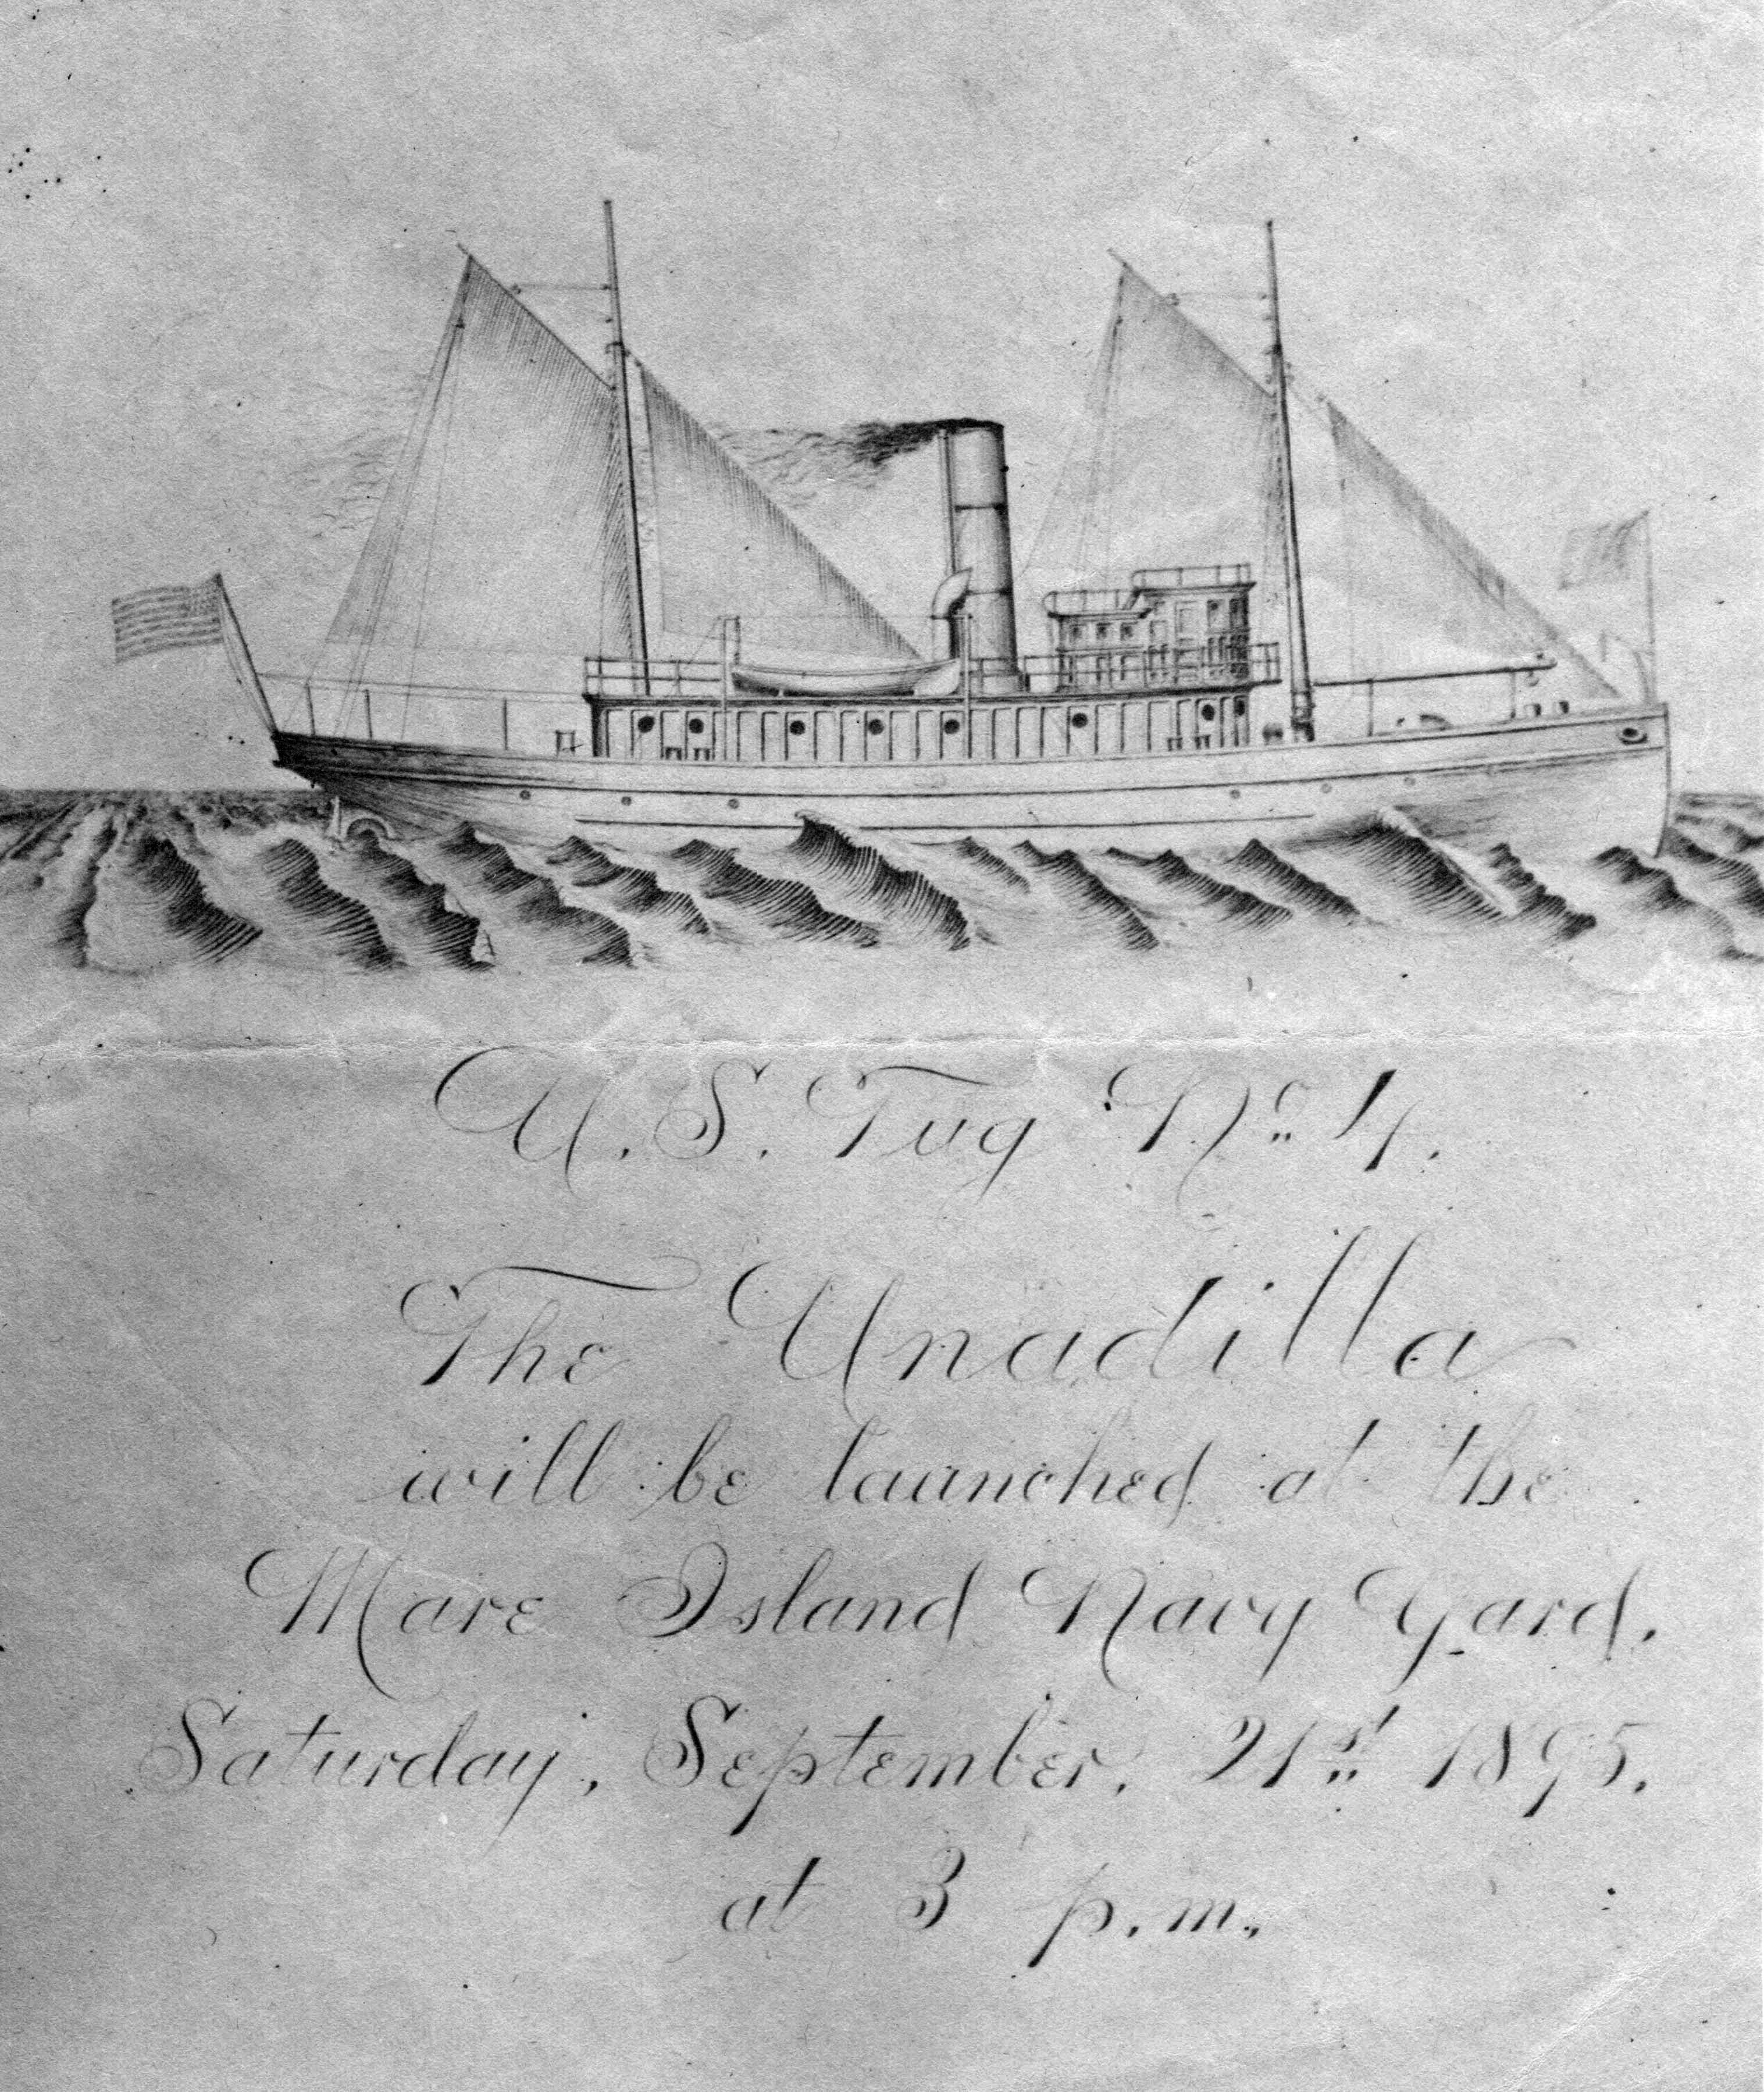 U.S. Tug No. 4.
The Unadilla
will be launched at the
Mare Island Navy Yard.
Saturday, September, 21st 1895.
at 3 p.m.